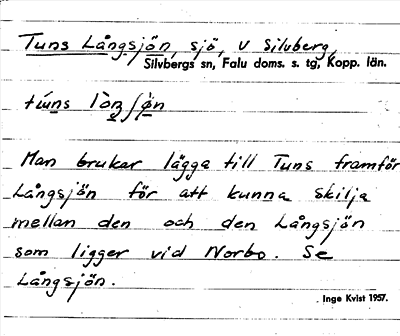 Tuns Långsjön, sjö, V Silvberg,
Silvbergs sn, Falu doms. s. tg, Kopp. län.
Man brukar lägga till Tuns framför
Långsjön för att kunna skilja
mellan den och den Långsjön
som ligger vid Norbo. Se
Långsjön.
Inge Kvist 1957.